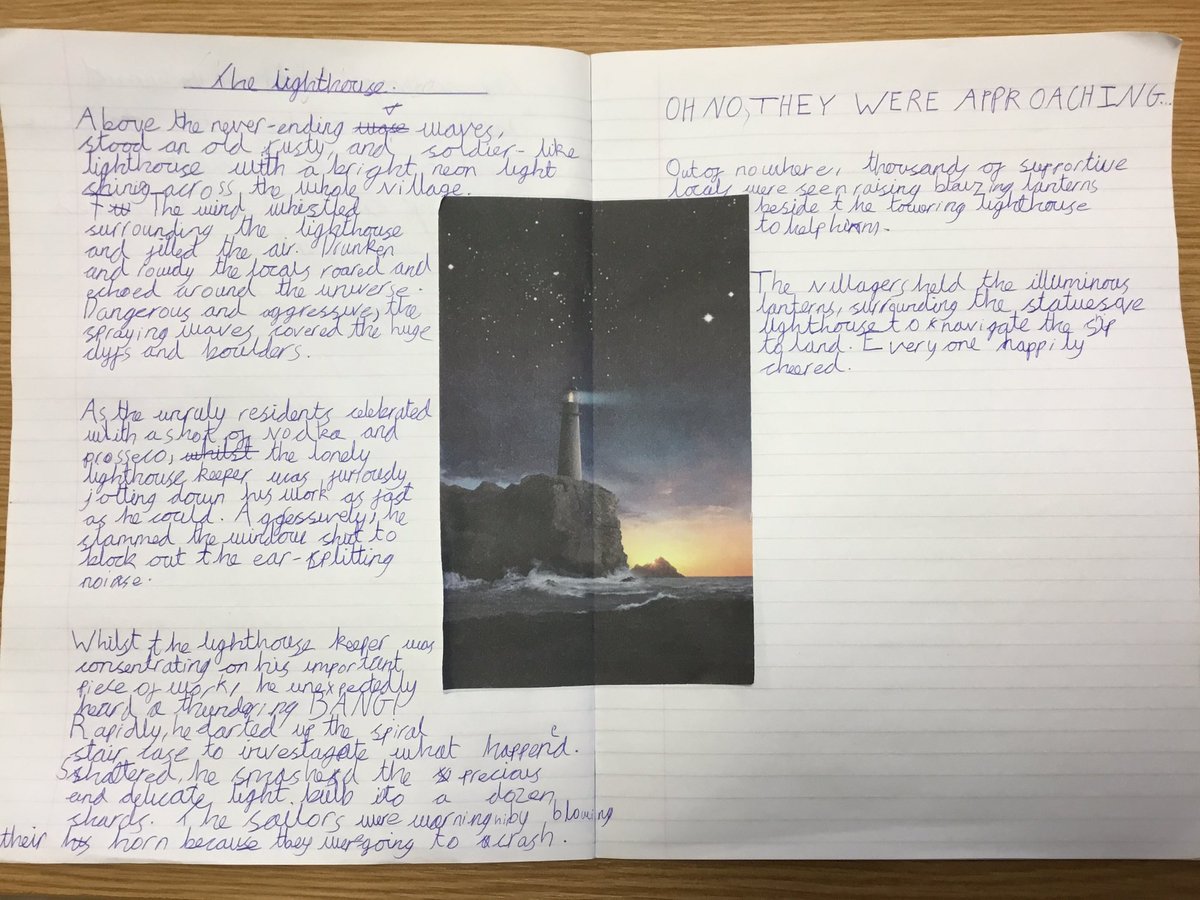 The lighthouse.
Above the never-ending waves,
stood an old rusty, and soldier-like
lighthouse with a bright, neon light
shing across the whole village.
The wind whistled
surrounding the lighthouse
and filled the air. Drunken
and rowdy the locals roared and
echoed around the universe.
Dangerous and aggressive, the
spraying waves, covered the huge
clyfs and boulders.
As the unruly residents celebrated
with a shot of Vodka and
prosseco, whilst the lonely
lighthouse keeper was furiously
jotting down his work as fast
as he could. Aggessively, he
slammed the window shut to
block out the ear-splitting
noise.
Whilst the lighthouse keeper was
consentrating on his important
piece of work, he unexpectedly
heard a thundering BANG!
Rapidly, he darted up the spiral
stair case to investagate what happened.
Shattered, he smashed the precious
and delicate light bulb ito a dozen
shards. The sailors were warning him by blowing
their horn because they were going to crash.
OH NO, THEY WERE APPROACHING...
Out of nowhere, thousands of supportive
locals were seen raising blazing lanterns
beside the towering lighthouse
to help him.
The villagers held the illuminous
lanterns, surrounding the statuesqe
lighthouse to knavigate the ship
to land. Everyone happily
cheered.